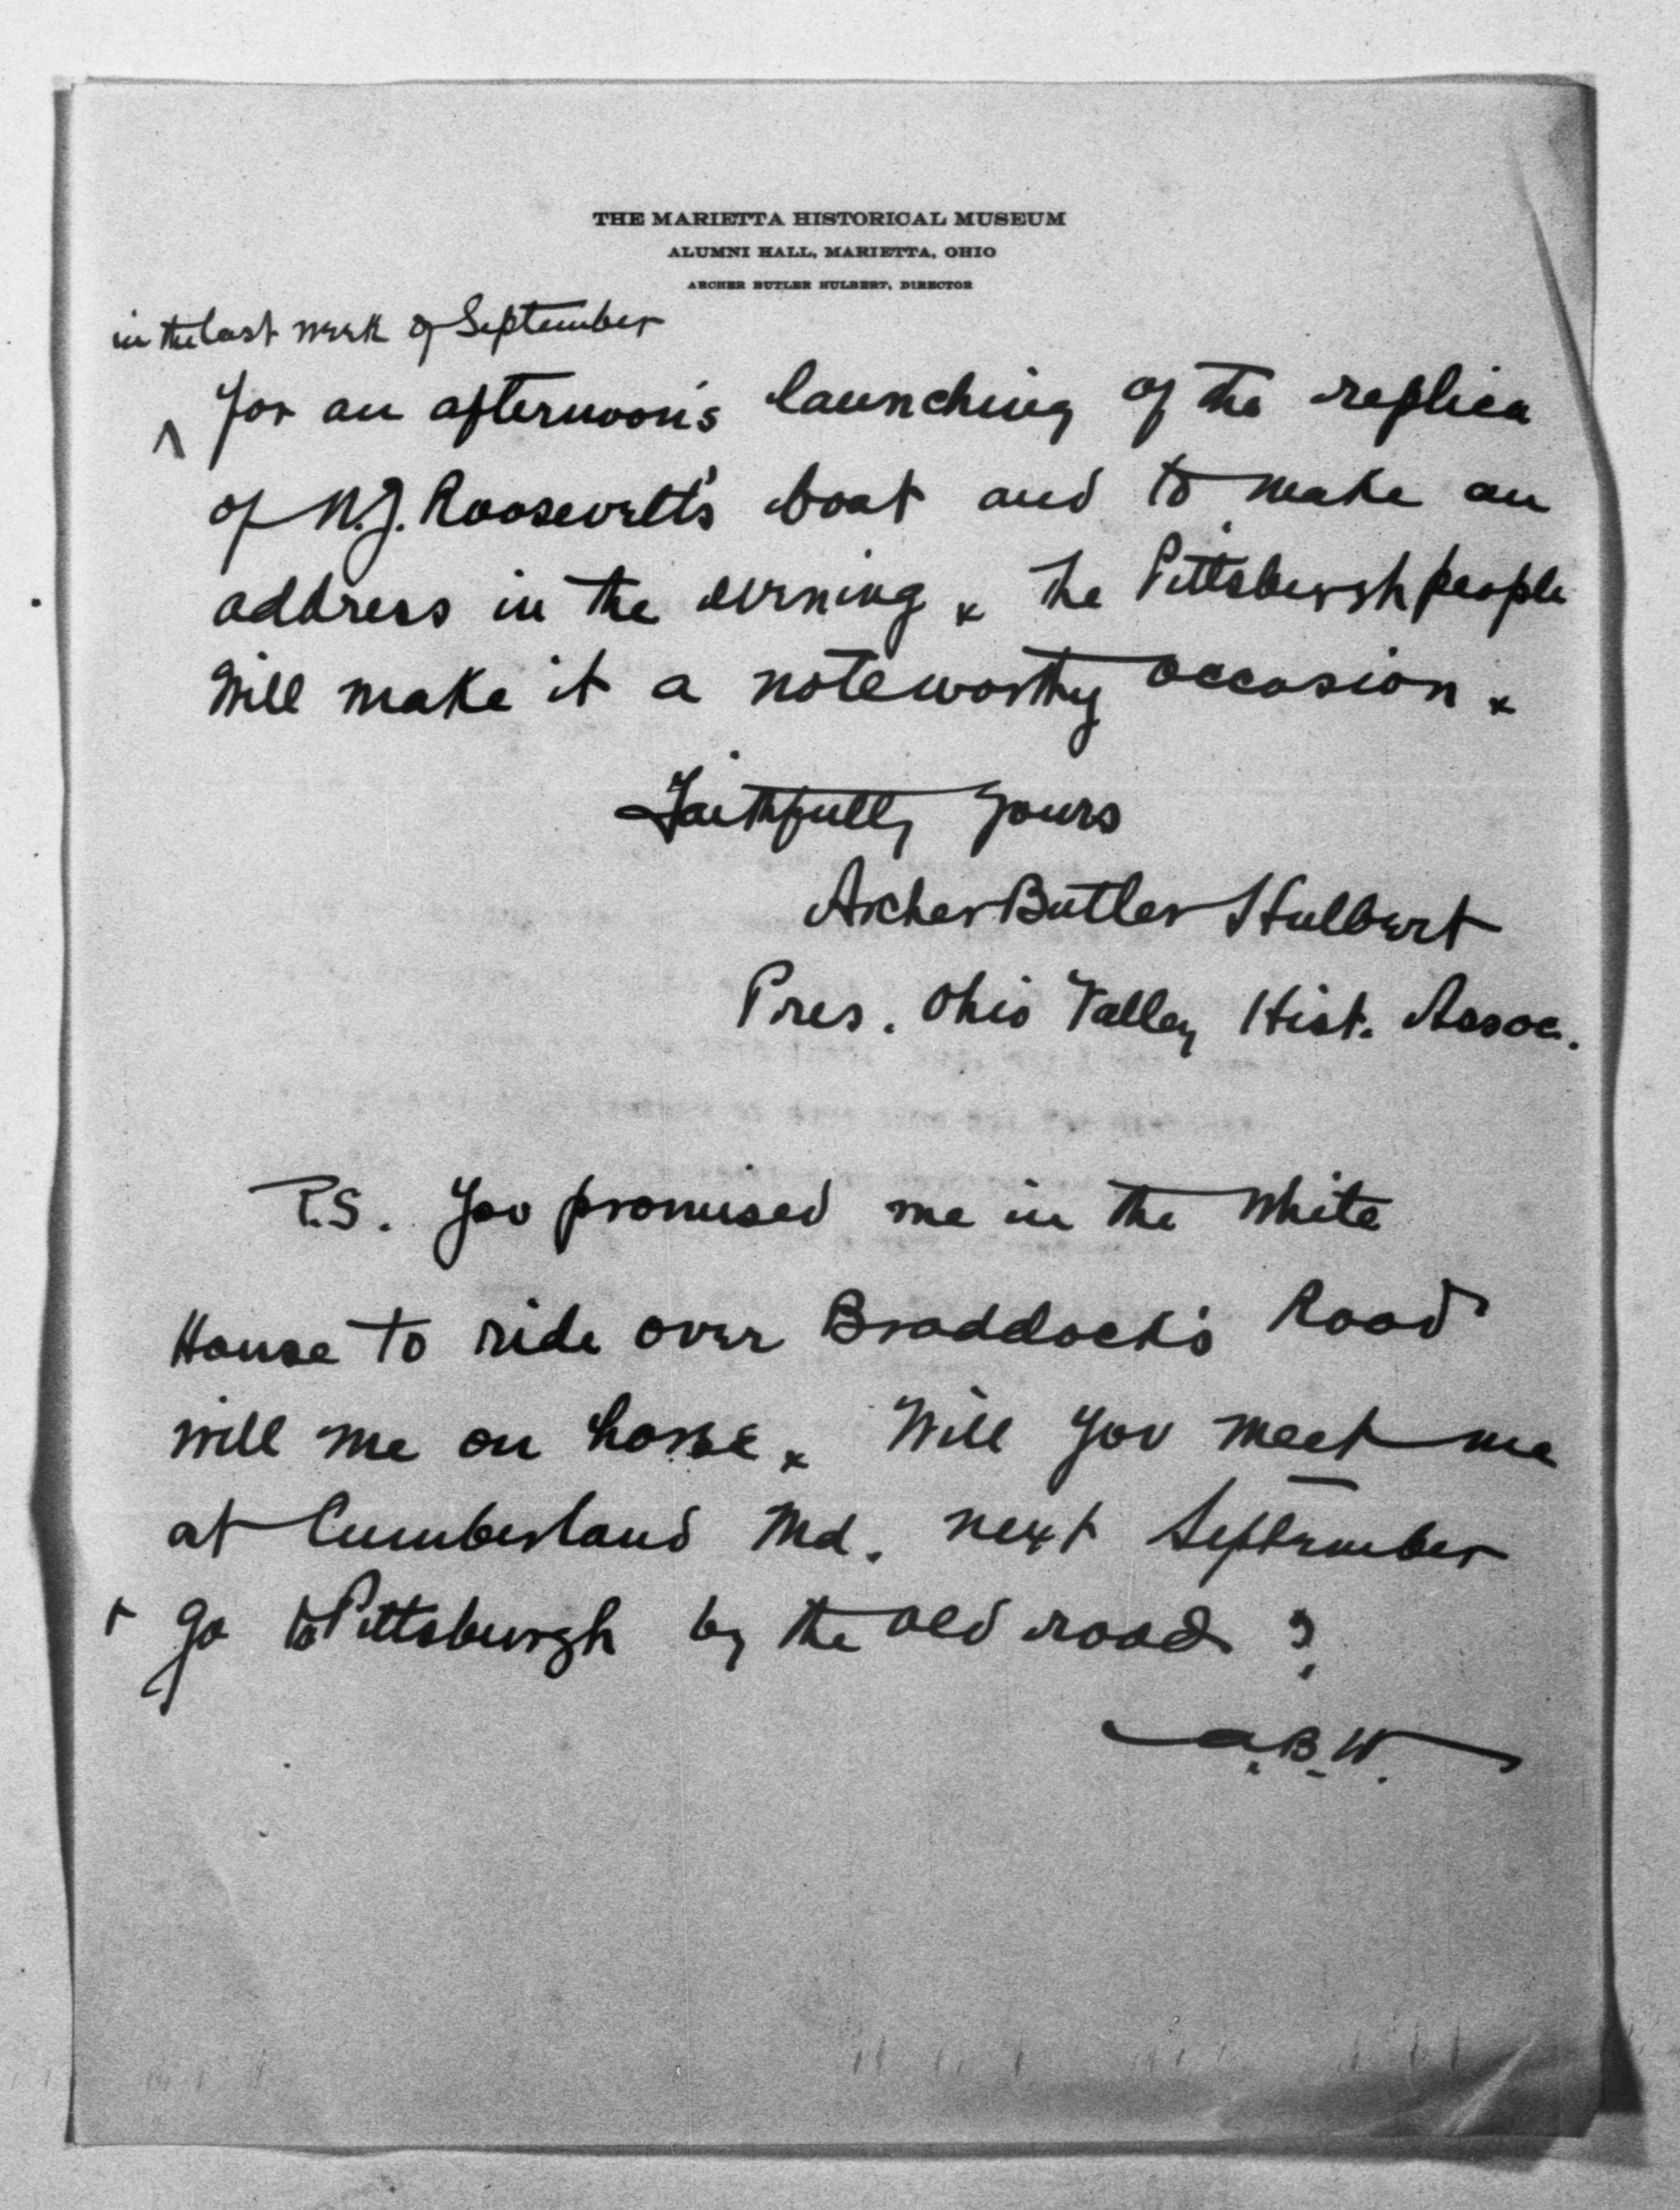 THE MARIETTA HISTORICAL MUSEUM
ALUMNI HALL, MARIETTA, OHIO
ARCHER BUTLER HULBERT, DIRECTOR
in the last week of September
^ for an afternoon's launching of the replica
of N.J. Roosevelt's boat and to make an
address in the evening x The Pittsburgh people
will make it a noteworthy occasion x
Faithfully Yours
Archer Butler Hulbert
Pres. Ohio Valley Hist. Assoc.
P.S. You promised me in the White
House to ride over Braddock's Road
will me on horse x Will you meet me
at Cumberland Md. next September
+ go to Pittsburgh by the old road?
A.B.H.